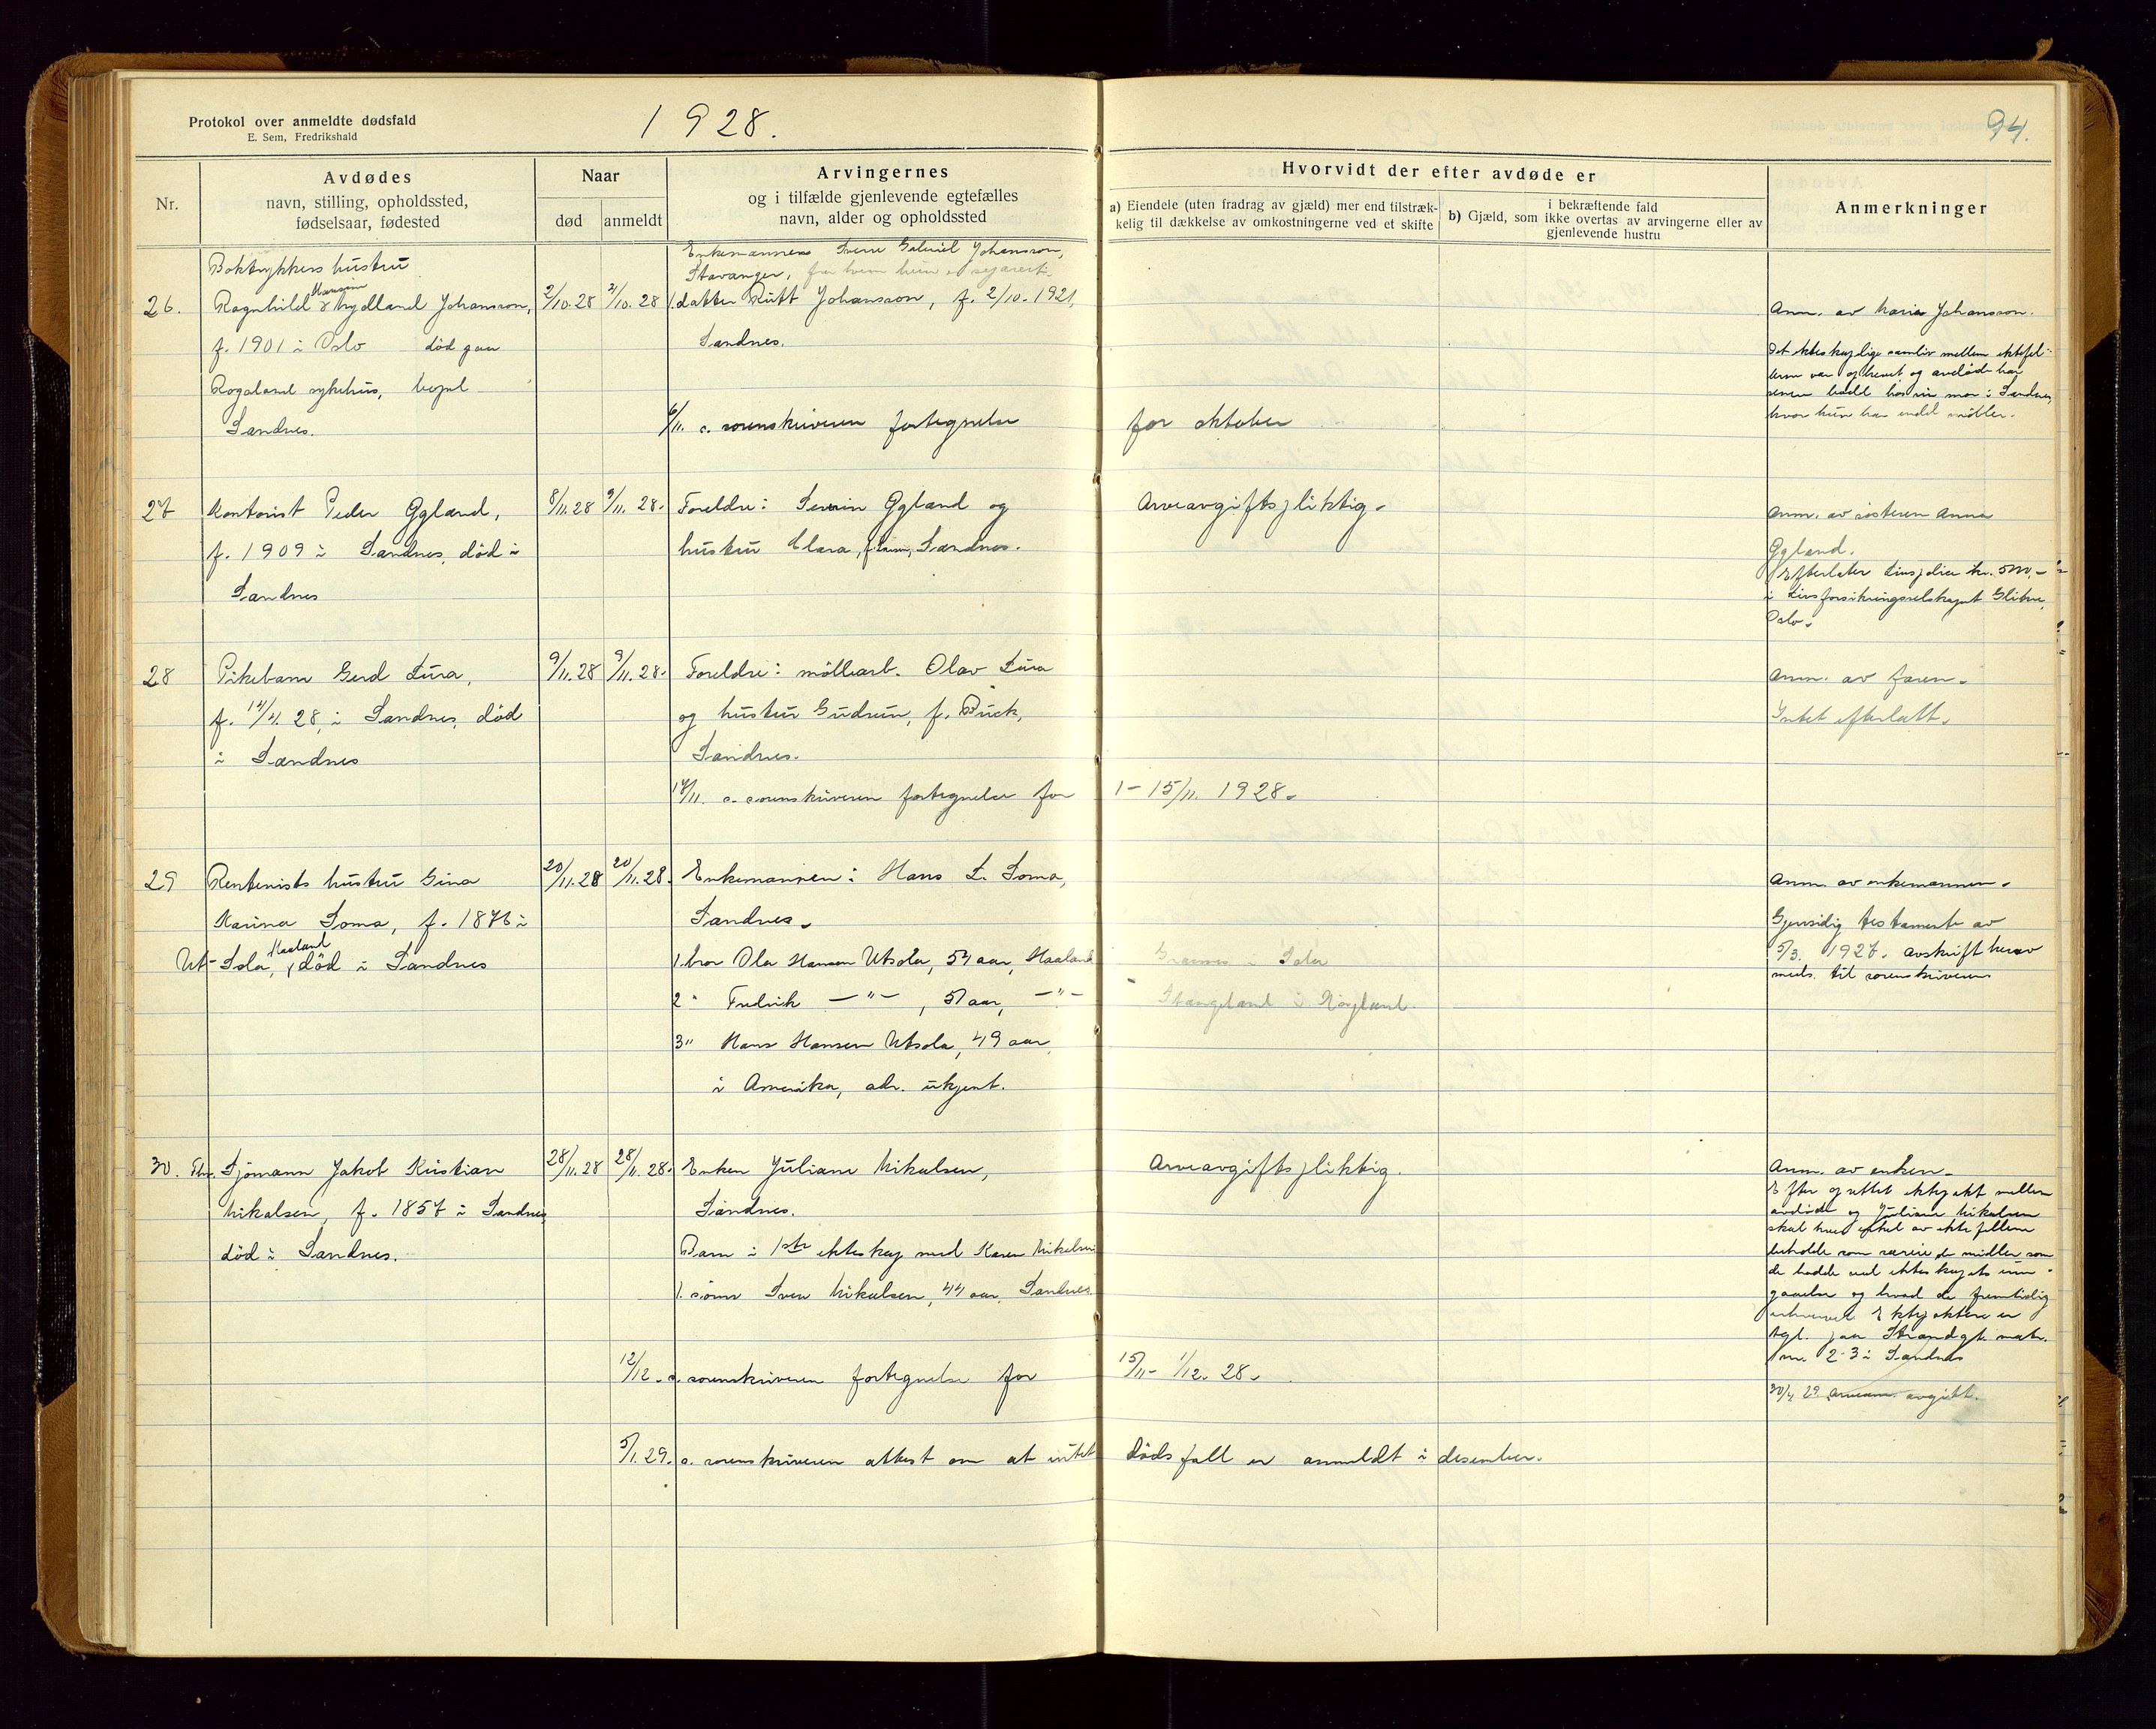 Protokol over anmeldte dødsfald
E. Sem, Fredrikshald
1928.
94.
Nr.
Avdødes
navn, stilling, opholdssted,
fødselsaar, fødested
Naar
død
anmeldt
Arvingernes
og i tilfælde gjenlevende egtefælles
navn, alder og opholdssted
Hvorvidt der efter avdøde er
a) Eiendele (uten fradrag av gjæld) mer end tilstræk-
kelig til dækkelse av omkostningerne ved et skifte
i bekræftende fald
b) Gjæld, som ikke overtas av arvingerne eller av
gjenlevende hustru
Anmerkninger
26.
Boktrykkers hustru
Ragnhild Johansson,
f. 1901 i Oslo død paa
Rogaland sykehus,
Sandnes.
2/10.28
2/10.28
Enkemannen Sverre Gabriel Johansson,
Stavanger, fra hvem hun er separert.
1. datter Rutt Johansson, f. 2/10.1921,
Sandnes.
6/11. s. sorenskriveren fortegnelse for oktober
Anm. av Maria Johansson.
Det ekteskapelige samliv mellem ektefel-
lerne var ophevet og avdøde har
senere bodd hos sin mor i Sandnes,
hvor hun har endel møbler.
27
Kontorist Peder Eggland,
f. 1909 i Sandnes, død i
Sandnes
8/11.28
9/11.28.
Foreldre: Severin Eggland og
hustru Clara, Sandnes.
Arveavgiftspliktig.
Anm. av søsteren Anna
Eggland.
Efterlater livspolice kr. 500,-
i Livsforsikringsselskapet
Oslo.
28
Pikebarn Gerd Lura,
f. 14/4.28, i Sandnes, død
i Sandnes
9/11.28
9/11.28.
Foreldre: møllearb. Olav Lura
og hustru Gudrun, f. Buck,
Sandnes.
17/11. s. sorenskriveren fortegnelse for 1-15/11. 1928.
Anm. av faren.
Intet efterlatt.
29
Rentenists hustru Gina
Karina Soma, f. 1876 i
Haaland
Ut-Sola, død i Sandnes
20/11.28
20/11.28.
Enkemannen: Hans L. Soma,
Sandnes.
1. bror Ola Hansen Utsola, 54 aar, Haaland
2 " Fredrik —"—, 51 aar, —"—
3 " Hans Hansen Utsola, 49 aar
i Amerika, adr. ukjent.
i Sola
Stangeland i Høyland.
Anm. av enkemannen.
Gjensidig testamente av
5/3. 1927. avskrift herav
meds. til sorenskriveren
30.
Fhv. Sjømann Jakob Kristian
Mikalsen, f. 1857 i Sandnes
død i Sandnes.
28/11.28
28/11.28.
Enken Juliane Mikalsen,
Sandnes.
Barn i 1ste ekteskap med Karen Mikalsen
1. sønn Sven Mikalsen, 44 aar, Sandnes.
Arveavgiftspliktig.
Anm. av enken.
Efter oprettet ektepakt mellem
avdøde og Juliane Mikalsen
skal hver enkel av ektefellene
beholde som særeie de midler som
de hadde ved ekteskapets inn-
gaaelse og hvad de fremtidig
erhverver. Ektepakten er
tgl. paa Strandgt. matr.
nr. 23 i Sandnes
30/4 29 avgitt.
12/12. s. sorenskriveren fortegnelse for 15/11- 1/12. 28.
5/1.29. s. sorenskriveren attest om at intet dødsfall er anmeldt i desember.